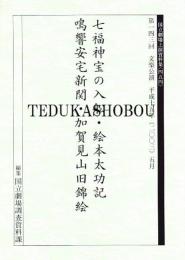 国立劇場上演資料集〈四五四〉
第一四三回 文楽公演 平成十五年(二〇〇三)五月
七福神宝の入舩・絵本太功記
鳴響安宅新関・加賀見山旧錦絵
TEDUKASHOBOU
編集 国立劇場調査資料課